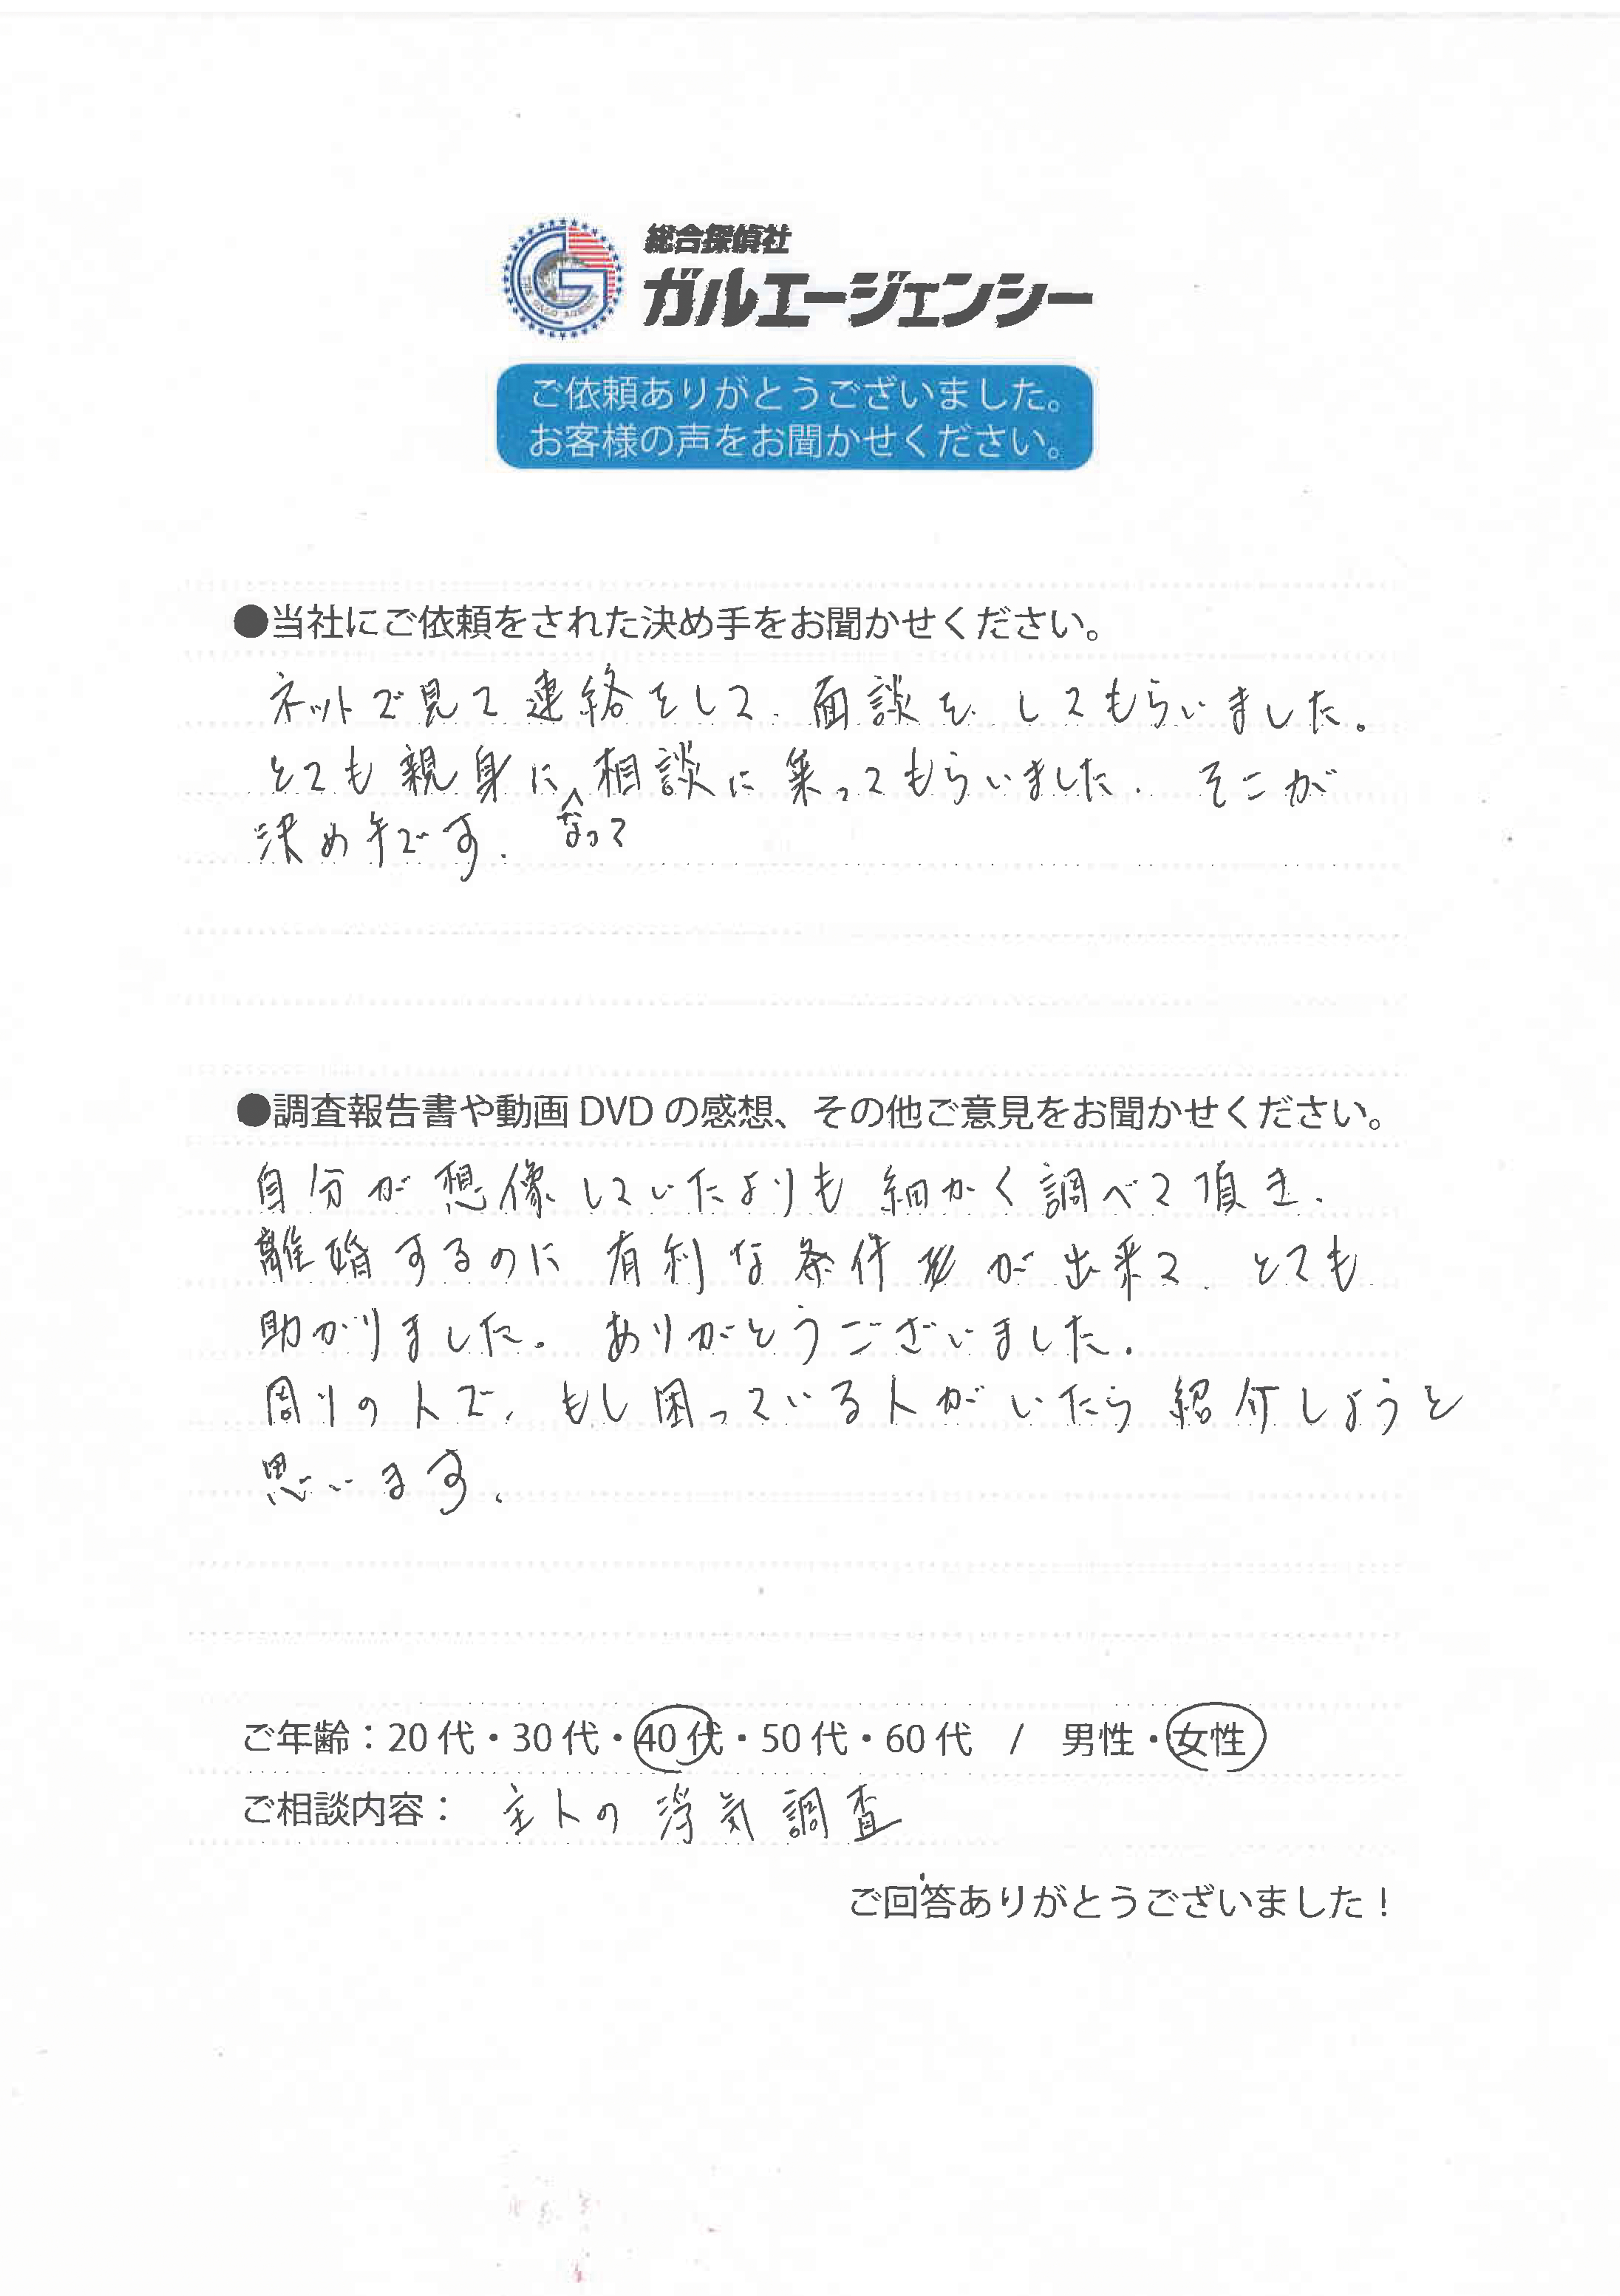 総合探偵社
ガルエージェンシー
ご依頼ありがとうございました。
お客様の声をお聞かせください。
●当社にご依頼をされた決め手をお聞かせください。
ネットで見て連絡をして、面談をしてもらいました。
とても親身に相談に乗ってもらいました。そこが
なって
決め手です。
●調査報告書や動画 DVD の感想、その他ご意見をお聞かせください。
自分が想像していたよりも細かく調べて頂き、
離婚するのに有利な条件が出来て、とても
助かりました。ありがとうございました。
周りの人で、もし困っている人がいたら紹介しようと
思います。
ご年齢：20 代・30 代・40 代・50 代・60 代 / 男性・女性
ご相談内容： 主人の浮気調査
ご回答ありがとうございました！